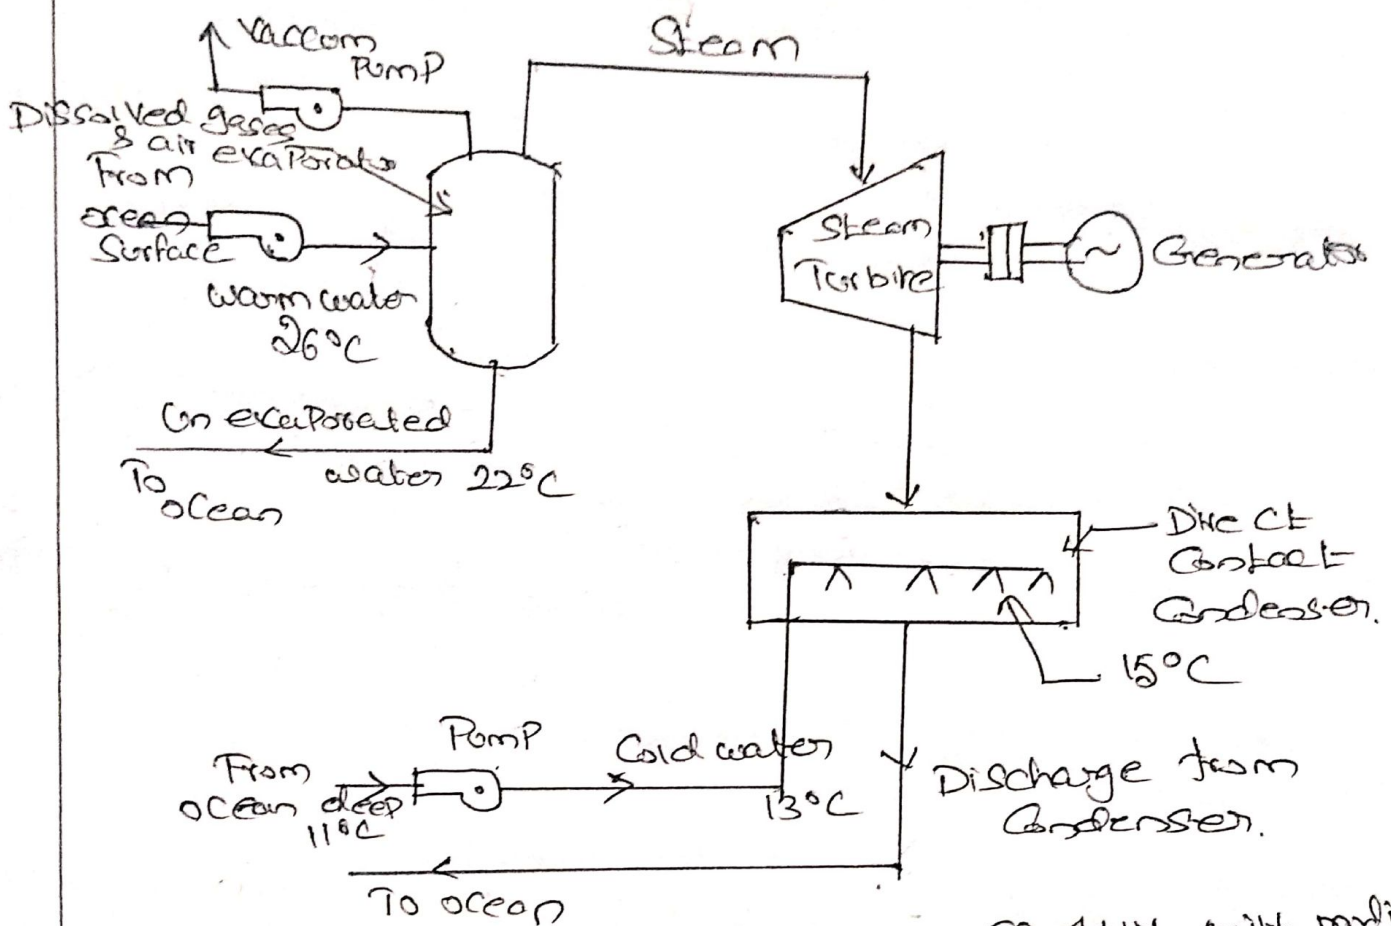 Vaccum
Pump
Steam
Dissolved gases
& air
evaporator
From
ocean
Surface
warm water
26°C
Steam
Turbine
Generator
Un evaporated
water 22°C
To
ocean
Direct
Contact
Condenser.
15°C
Pump
Cold water
From
ocean deep
11°C
13°C
Discharge from
Condenser.
To ocean